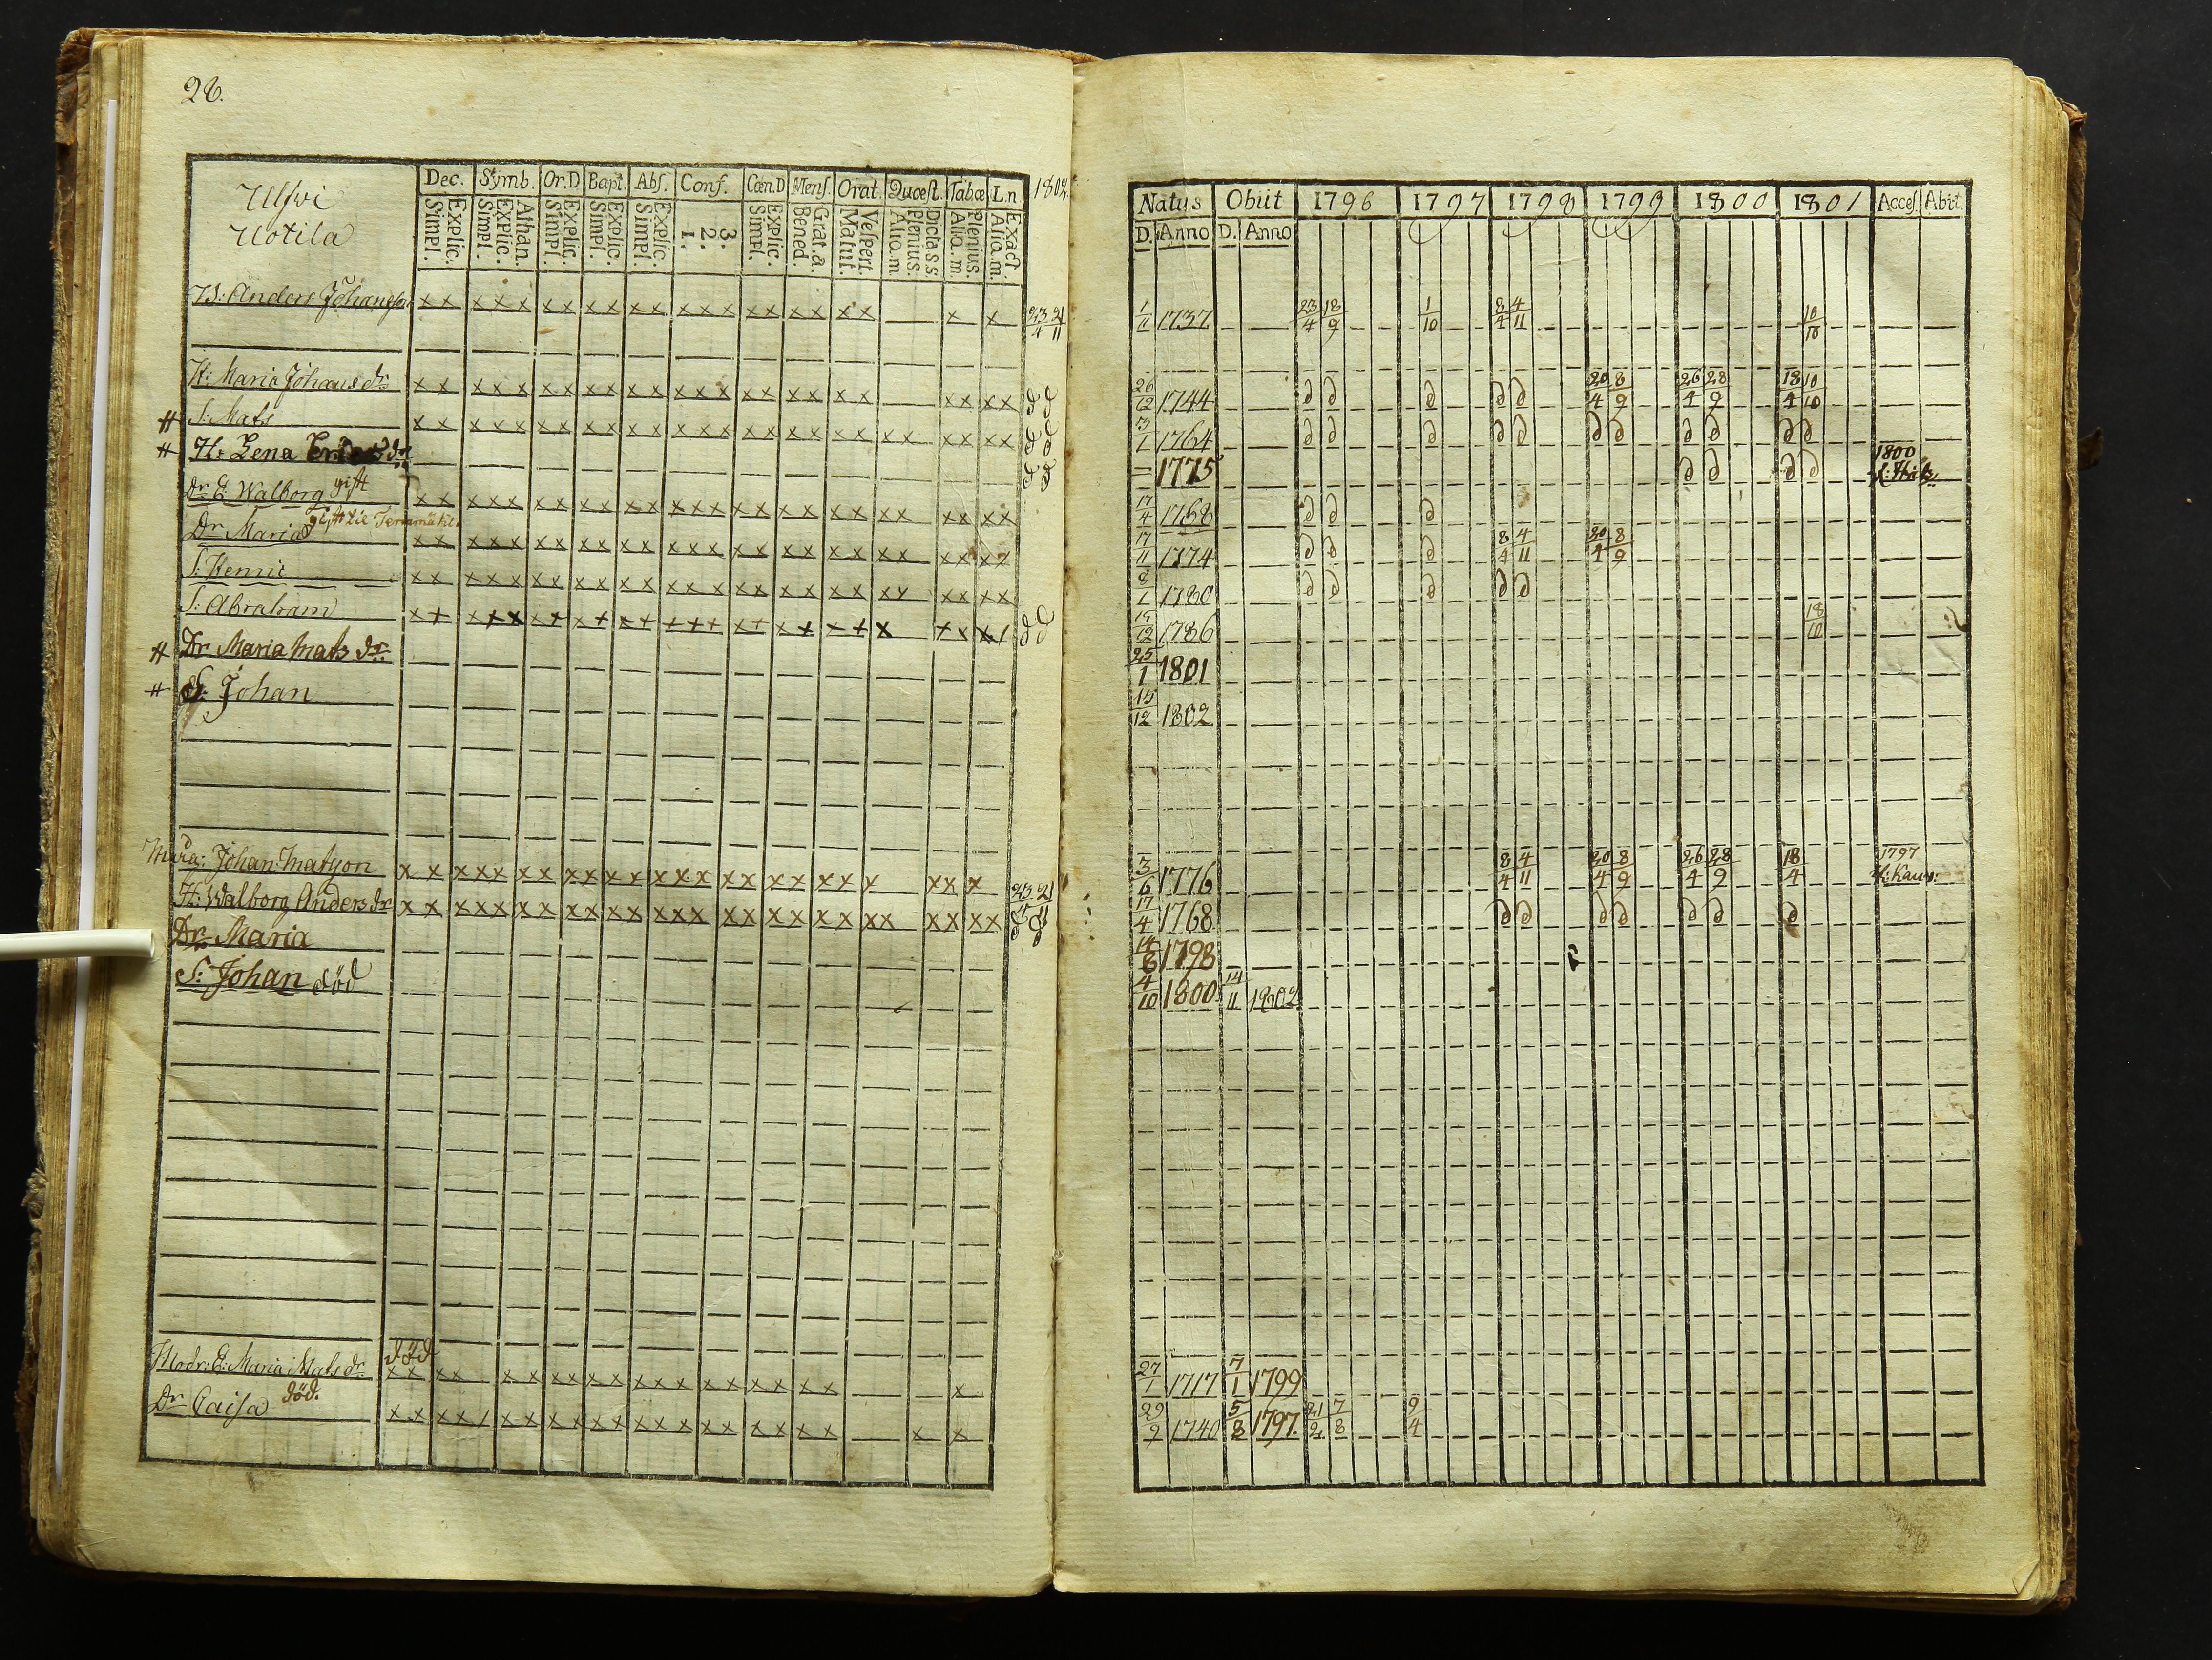 28.
Ulswi
Uotila
Dec. Symb. Or.D Bapt. Abs. Conf. Cœn.D Mens. Orat. Quæst. Tabæ L.n 1802
Explic. Simpl. Athan. Explic. Simpl. Explic. Simpl. Explic. Simpl. Explic. Simpl. 3. 2. 1. Explic. Simpl. Grat.a. Bened. Vespert. Matut. Dicta s.s. Plenius. Aliq.m. Plenius. Aliq.m. Exact. Aliq.m.
Anders Johansson x x x x x x x x x x x x x x x x x x x x x x 23/4 21/11
H: Maria Johans dr x x x x x x x x x x x x x x x x x x x x x x x x
# S: Mats x x x x x x x x x x x x x x x x x x x x x x x x x x
# H: Lena
Dr E Walborg gift x x x x x x x x x x x x x x x x x x x x x x x x x x
Dr Maria gift x x x x x x x x x x x x x x x x x x x x x x x x x x
S: Henric x x x x x x x x x x x x x x x x x x x x x x x x x x
S: Abraham x x x x x x x x x x x x x x x x x x x x x x x x
# Dr Maria Mats dr
# S: Johan
Johan Matsson x x x x x x x x x x x x x x x x x x x x x x x x 23/4 21/11
H: Walborg Anders dr x x x x x x x x x x x x x x x x x x x x x x x x x x
Dr Maria
S: Johan död
Modr: E: Maria Mats dr död x x x x x x x x x x x x x x x x x x x x
Dr Caisa död. x x x x x x x x x x x x x x x x x x x x x x
Natus Obiit 1796 1797 1798 1799 1800 1801 Acces. Abit.
D. Anno D. Anno
1/11 1737 23/4 18/9 1/10 8/4 4/11 10/10
26/12 1744 20/4 8/9 26/4 28/9 18/4 10/10
1764
1775 1800
17/4 1768
17/11 1774 8/4 4/11 20/4 8/9
8/1 1780
1786 18/10
25/1 1801
15/12 1802
3/6 1776 8/4 4/11 20/4 8/9 26/4 28/9 18/4 1797
17/4 1768
1798
4/10 1800 14/11 1802
27/1 1717 7/1 1799
29/9 1740 5/8 1797. 21/2 7/8 9/4